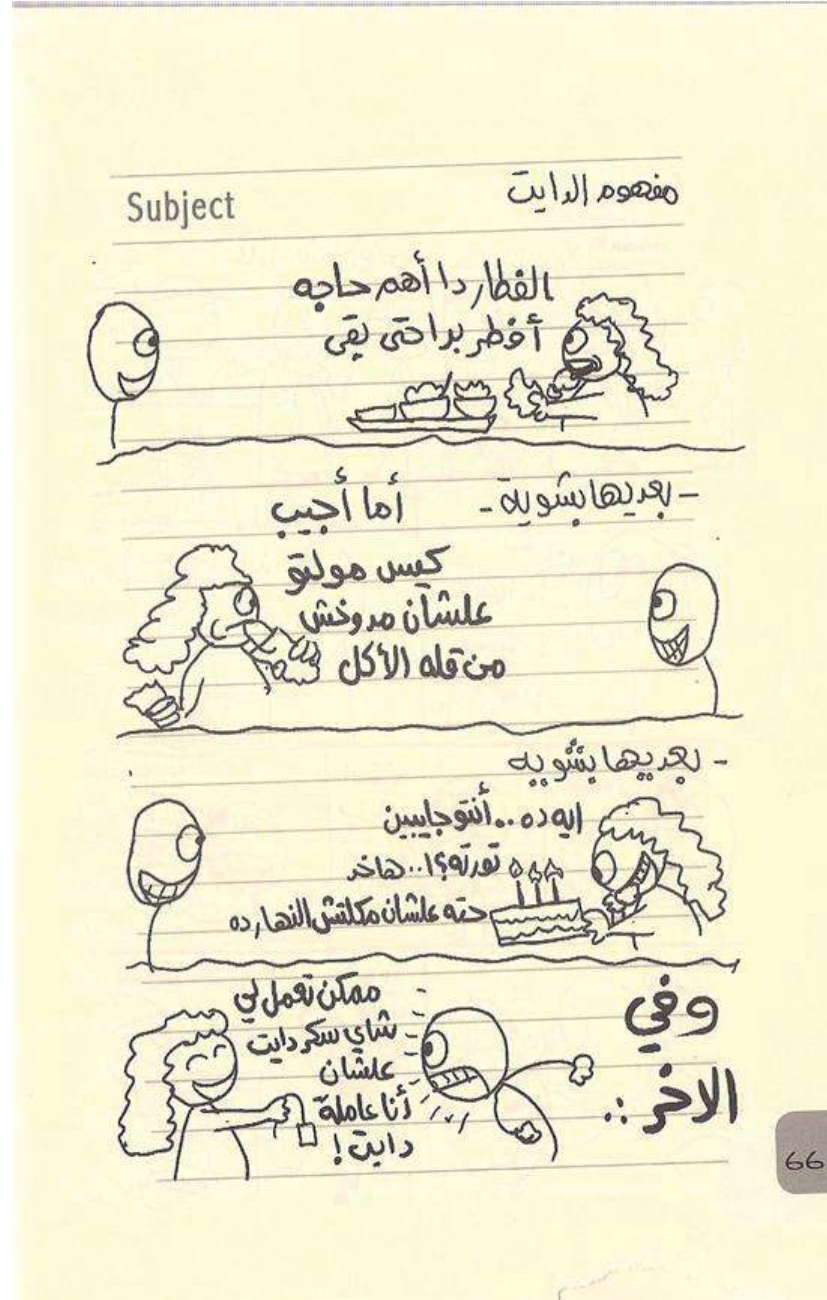 Subject
مفهوم الدايت
الفطار دا أهم حاجه
أفطر براحتى بقى
- بعديها بشوية -
أما أجيب
كيس مولتو
علشان مدوخش
من قله الأكل
- بعديها بشويه
ايه ده .. أنتو جايبين
تورته؟! .. هاخد
حته علشان مكلتش النهارده
وفي
الاخر :.
ممكن تعمل لي
شاي سكر دايت
علشان
أنا عاملة
دايت !
66